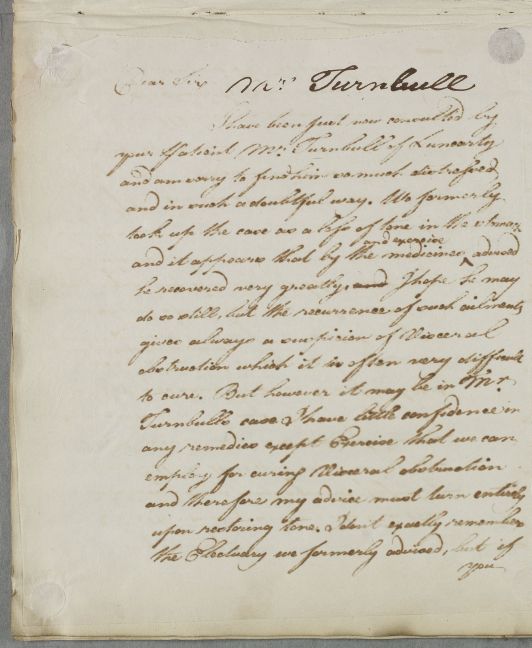 Dear Sir Mrs. Turnbull
I have been just now consulted by
your Patient Mr. Turnbull of Luncarty
and am sorry to find him so much distressed
and in such a doubtful way. We formerly
took up the case as a loss of tone in the stomach
and it appears that by the medicines and exercise advised
he recovered very greatly, and I hope he may
do so still, but the recurrence of such ailments
gives always a suspicion of Visceral
obstruction which it is often very difficult
to cure. But however it may be in Mr.
Turnbull's case I have little confidence in
any remedies except Exercise that we can
employ for curing Visceral obstruction
and therefore my advice must turn entirely
upon restoring tone. I don't exactly remember
the Electuary we formerly advised, but if
you